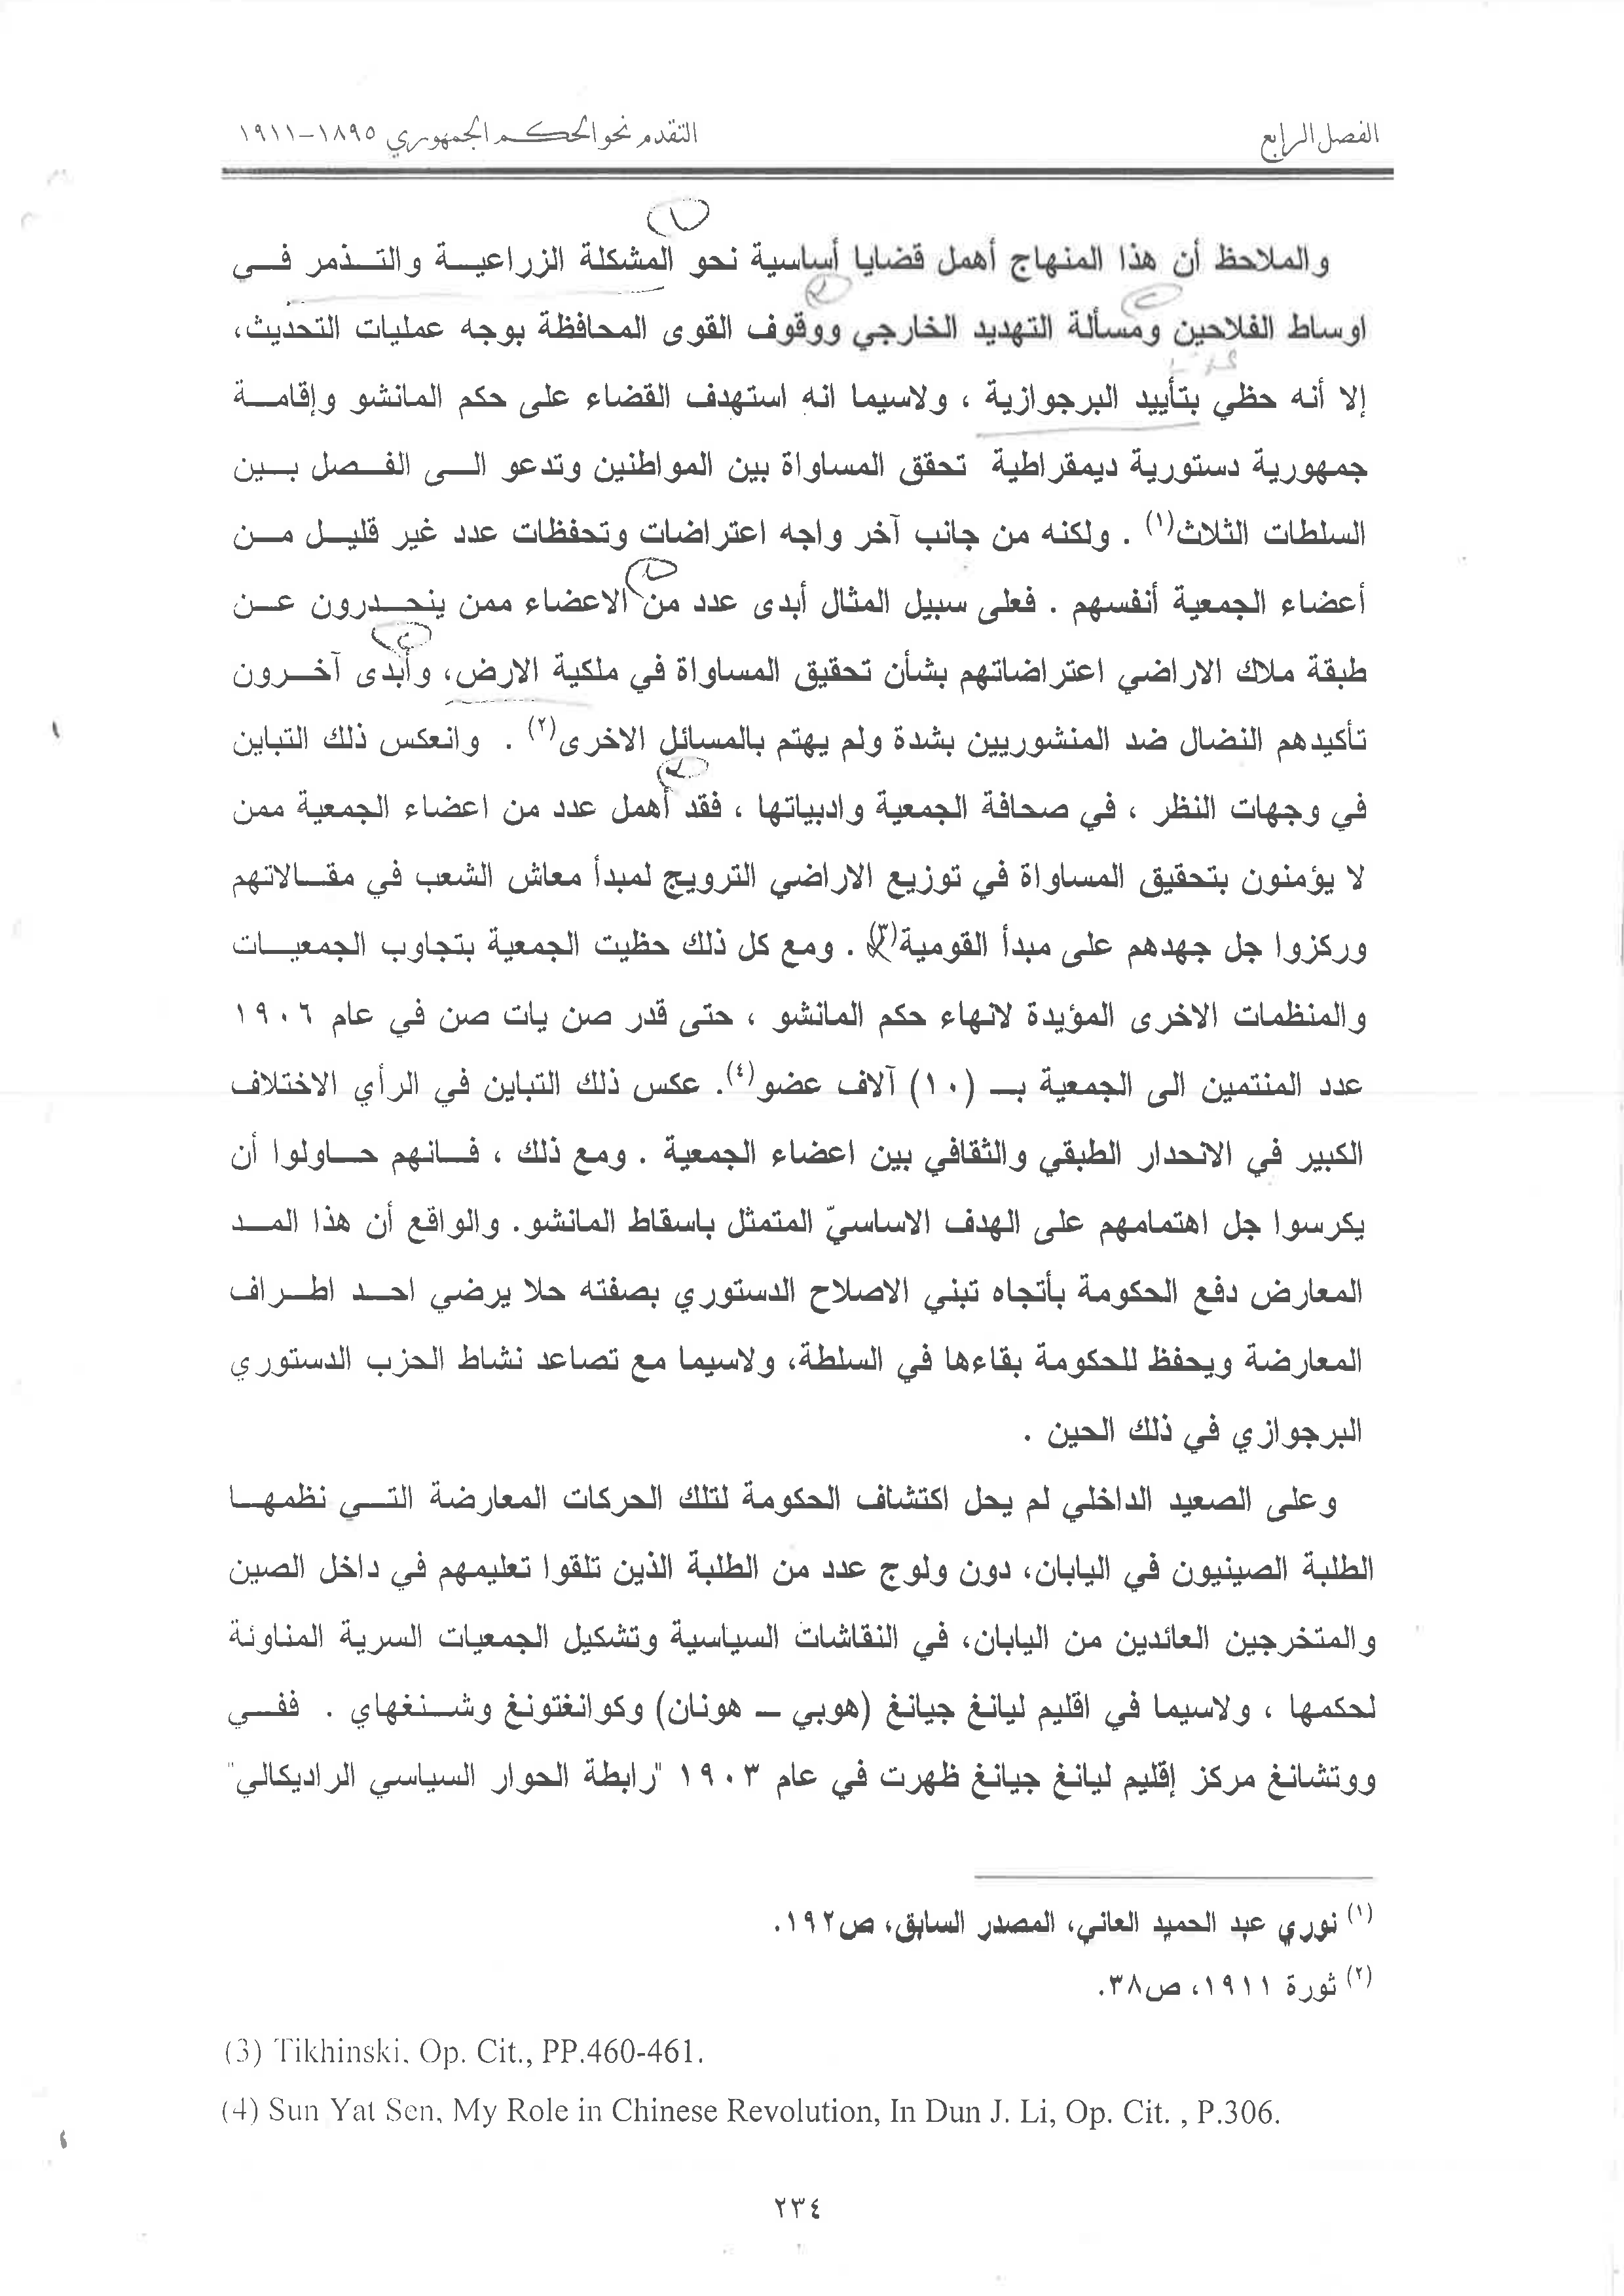 الفصل الرابع
التقدم نحو الحكم الجمهوري ١٨٩٥-١٩١١
والملاحظ أن هذا المنهاج أهمل قضايا أساسية نحو المشكلة الزراعية والتذمر في
اوساط الفلاحين ومسألة التهديد الخارجي ووقوف القوى المحافظة بوجه عمليات التحديث،
إلا أنه حظي بتأييد البرجوازية ، ولاسيما انه استهدف القضاء على حكم المانشو وإقامة
جمهورية دستورية ديمقراطية تحقق المساواة بين المواطنين وتدعو الى الفصل بين
السلطات الثلاث(١) . ولكنه من جانب آخر واجه اعتراضات وتحفظات عدد غير قليل من
أعضاء الجمعية أنفسهم . فعلى سبيل المثال أبدى عدد من الاعضاء ممن ينحدرون عن
طبقة ملاك الاراضي اعتراضاتهم بشأن تحقيق المساواة في ملكية الارض، وأبدى آخرون
تأكيدهم النضال ضد المنشوريين بشدة ولم يهتم بالمسائل الاخرى(٢) . وانعكس ذلك التباين
في وجهات النظر ، في صحافة الجمعية وادبياتها ، فقد أهمل عدد من اعضاء الجمعية ممن
لا يؤمنون بتحقيق المساواة في توزيع الاراضي الترويج لمبدأ معاش الشعب في مقالاتهم
وركزوا جل جهدهم على مبدأ القومية(٣) . ومع كل ذلك حظيت الجمعية بتجاوب الجمعيات
والمنظمات الاخرى المؤيدة لانهاء حكم المانشو ، حتى قدر صن يات صن في عام ١٩٠٦
عدد المنتمين الى الجمعية بـ (١٠) آلاف عضو(٤). عكس ذلك التباين في الرأي الاختلاف
الكبير في الانحدار الطبقي والثقافي بين اعضاء الجمعية . ومع ذلك ، فانهم حاولوا أن
يكرسوا جل اهتمامهم على الهدف الاساسيّ المتمثل باسقاط المانشو. والواقع أن هذا المد
المعارض دفع الحكومة بأتجاه تبني الاصلاح الدستوري بصفته حلا يرضي احد اطراف
المعارضة ويحفظ للحكومة بقاءها في السلطة، ولاسيما مع تصاعد نشاط الحزب الدستوري
البرجوازي في ذلك الحين .
وعلى الصعيد الداخلي لم يحل اكتشاف الحكومة لتلك الحركات المعارضة التي نظمها
الطلبة الصينيون في اليابان، دون ولوج عدد من الطلبة الذين تلقوا تعليمهم في داخل الصين
والمتخرجين العائدين من اليابان، في النقاشات السياسية وتشكيل الجمعيات السرية المناوئة
لحكمها ، ولاسيما في اقليم ليانغ جيانغ (هوبي – هونان) وكوانغتونغ وشنغهاي . ففي
ووتشانغ مركز إقليم ليانغ جيانغ ظهرت في عام ١٩٠٣ "رابطة الحوار السياسي الراديكالي"
(١) نوري عبد الحميد العاني، المصدر السابق، ص١٩٢.
(٢) ثورة ١٩١١، ص٣٨.
(3) Tikhinski, Op. Cit., PP.460-461.
(4) Sun Yat Sen, My Role in Chinese Revolution, In Dun J. Li, Op. Cit. , P.306.
٢٣٤